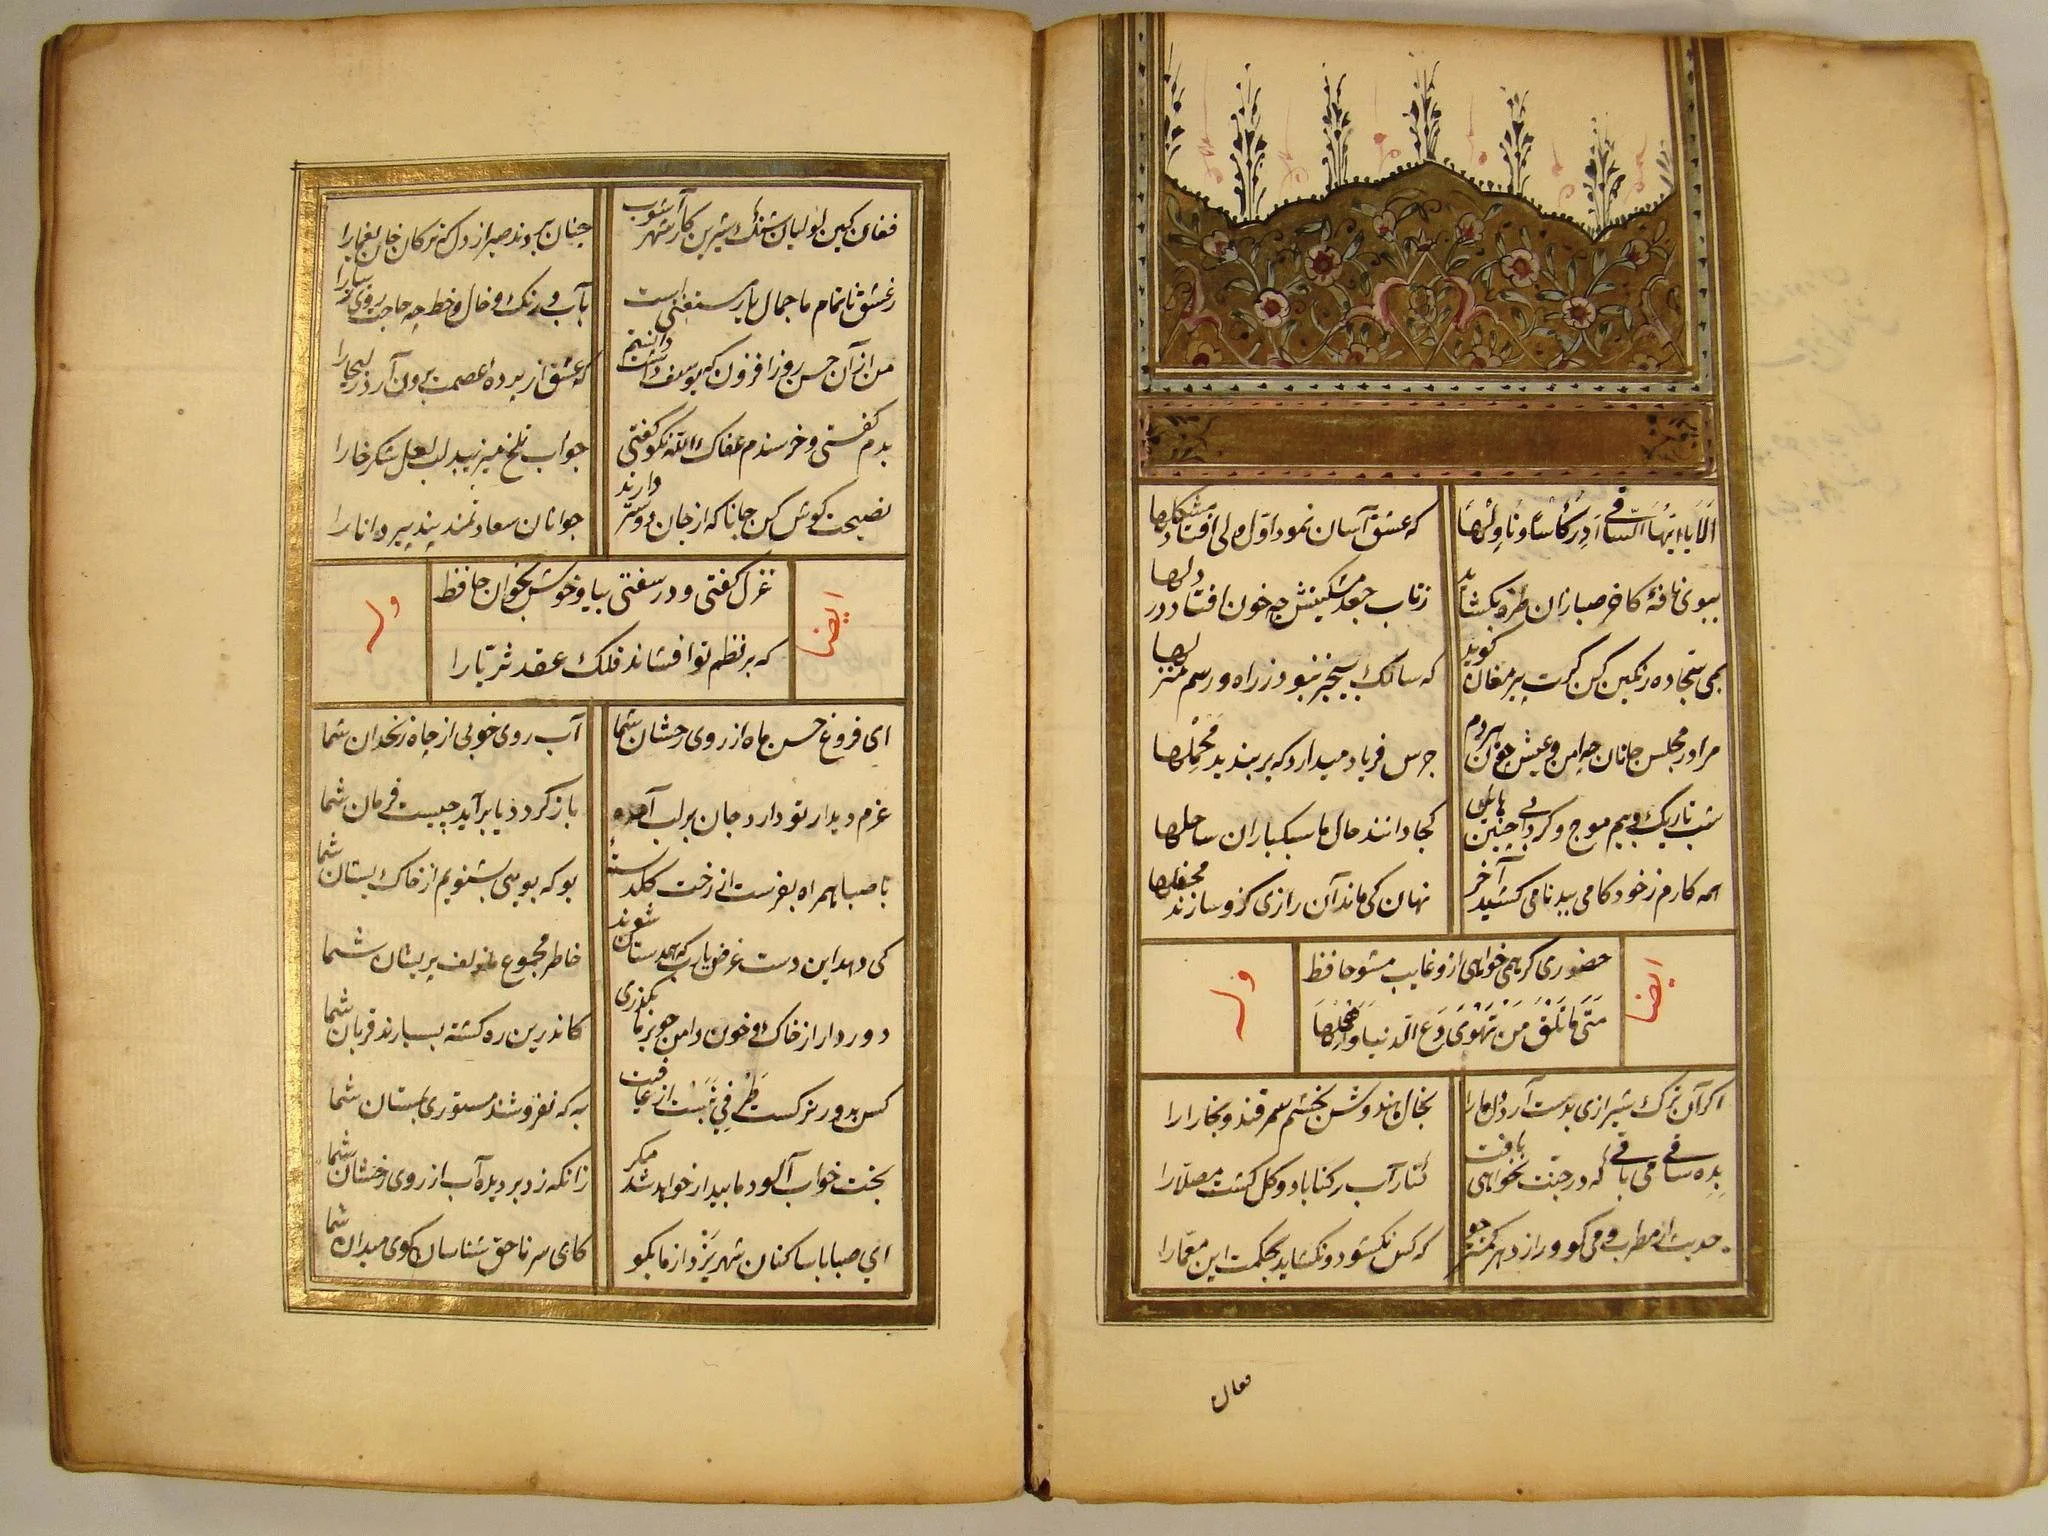 اَلَا یا اَیُّهَا السّاقی اَدِرْ کَأسًا وَ نَاوِلْهَا که عشق آسان نمود اوّل ولی افتاد مشکلها
ببوی نافهٔ کاخر صبا زان طره بکشاید ز تاب جعد مشکینش چه خون افتاد در دلها
بمی سجّاده رنکین کن کرت پیر مغان کوید که سالک بیخبر نبود ز راه و رسم منزلها
مرا در مجلس جانان چه امن و عیش چون هردم جرس فریاد میدارد که بربندید محملها
شب تاریک و بیم موج و کردابی چنین هایل کجا دانند حال ما سبکباران ساحلها
همه کارم ز خود کامی ببدنامی کشید آخر نهان کی ماند آن رازی کزو سازند محفلها
ایضا
حضوری کر همی خواهی ازو غایب مشو حافظ
مَتَی مَا تَلْقَ مَنْ تَهْوَی دَعِ الدّنیا وَ اَهْمِلْهَا
وله
اکر آن ترک شیرازی بدست آرد دل ما را بخال هندوش بخشم سمرقند و بخارا را
بده ساقی می باقی که در جنّت نخواهی یافت کنار آب رکناباد و کلکشت مصلّا را
حدیث از مطرب و می کو و راز دهر کمتر جو که کس نکشود و نکشاید بحکمت این معمّا را
فغان
فغان کین لولیان شنک شیرین کار شهر آشوب چنان بردند صبر از دل که ترکان خان یغما را
ز عشق ناتمام ما جمال یار مستغنی است بآب و رنک و خال و خط چه حاجت روی زیبا را
من از آن حسن روز افزون که یوسف داشت دانستم که عشق از پرده عصمت برون آرد زلیخا را
بدم کفتی و خرسندم عفاک الله نکو کفتی جواب تلخ میزیبد لب لعل شکرخا را
نصیحت کوش کن جانا که از جان دوستر دارند جوانان سعادتمند پند پیر دانا را
ایضا
غزل کفتی و در سفتی بیا و خوش بخوان حافظ
که بر نظم تو افشاند فلک عقد ثریّا را
وله
ای فروغ حسن ماه از روی رخشان شما آب روی خوبی از چاه زنخدان شما
عزم دیدار تو دارد جان بر لب آمده باز کردد یا برآید چیست فرمان شما
با صبا همراه بفرست از رخت کلدستهٔ بو که بویی بشنویم از خاک بستان شما
کی دهد این دست غرض یارب که همدستان شوند خاطر مجموع ما زلف پریشان شما
دور دار از خاک و خون دامن چو بر ما بکذری کاندرین ره کشته بسیارند قربان شما
کس بدور نرکست طرفی نَبَست از عافیت به که نفروشند مستوری بمستان شما
بخت خواب آلود ما بیدار خواهد شد مکر زانکه زد بر دیده آب از روی رخشان شما
ای صبا با ساکنان شهر یَزْد از ما بکو کای سر ناحق شناسان کوی میدان شما